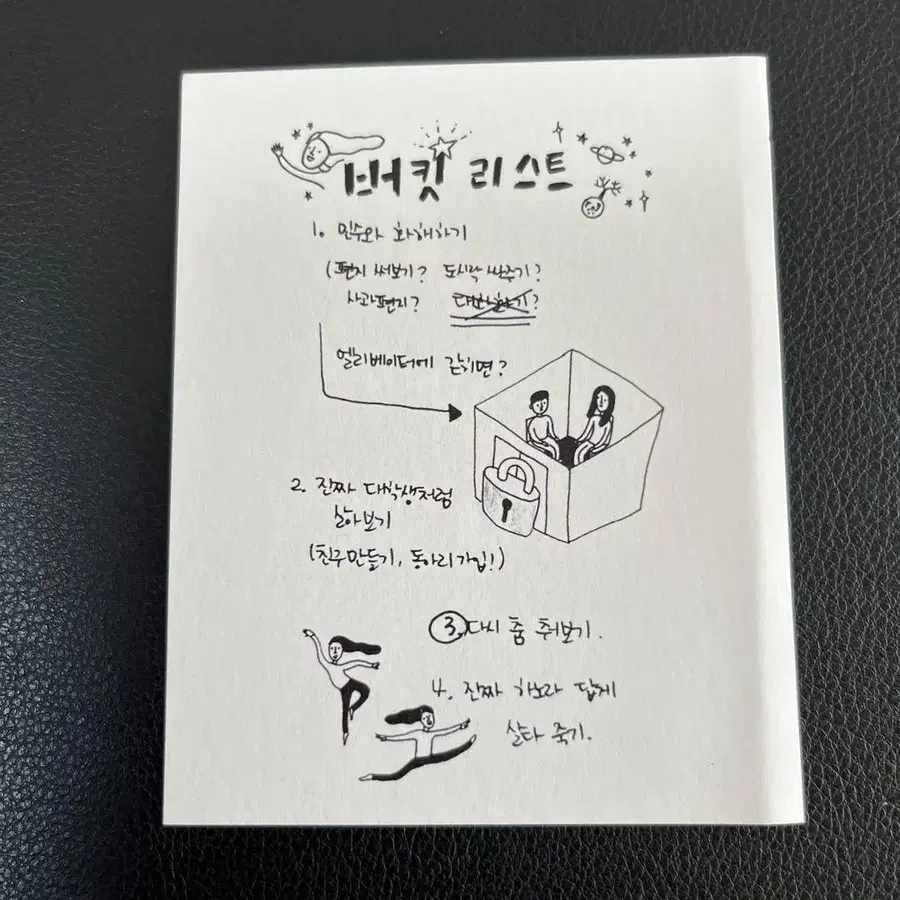 버킷 리스트
1. 민수와 화해하기
(편지 써보기? 도시락 싸주기?
사과편지? ?
엘리베이터에 갇히면?
2. 진짜 대학생처럼
살아보기
(친구만들기, 동아리가입!)
3. 다시 춤 춰보기.
4. 진짜 하노라 답게
살다 죽기.